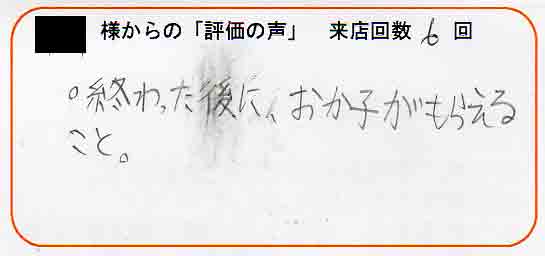 様からの「評価の声」 来店回数 6 回
○終わった後に、おか子がもらえる
こと。